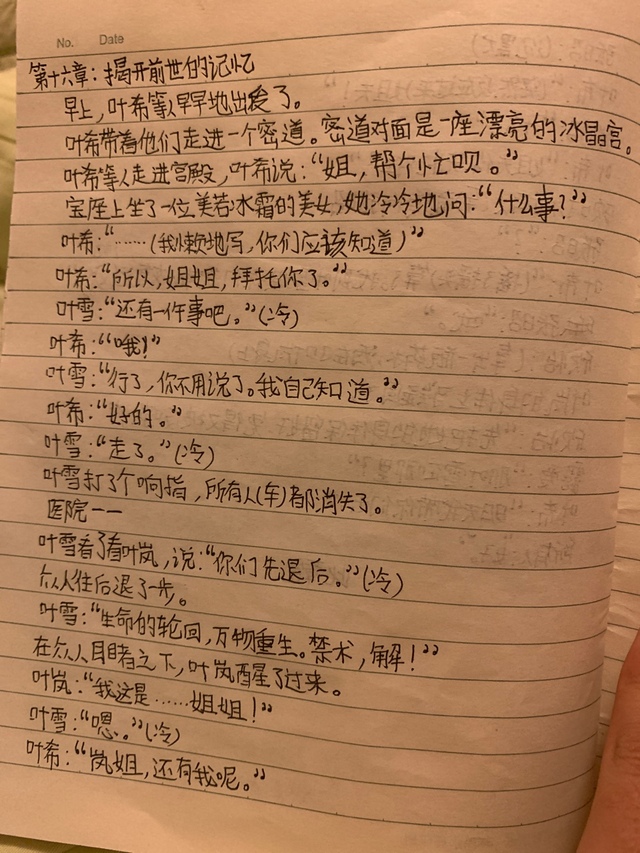 No. Date
第十六章：揭开前世的记忆
早上，叶希等人早早地出发了。
叶希带着他们走进一个密道。密道对面是一座漂亮的冰晶宫。
叶希等人走进宫殿，叶希说：“姐，帮个忙呗。”
宝座上坐了一位美若冰霜的美女，她冷冷地问：“什么事？”
叶希：“……（我懒地写，你们应该知道）”
叶希：“所以，姐姐，拜托你了。”
叶雪：“还有一件事吧。”（冷）
叶希：“哦！”
叶雪：“行了，你不用说了。我自己知道。”
叶希：“好的。”
叶雪：“走了。”（冷）
叶雪打了个响指，所有人（车）都消失了。
医院——
叶雪看了看叶岚，说：“你们先退后。”（冷）
众人往后退了一步。
叶雪：“生命的轮回，万物重生。禁术，解！”
在众人目睹之下，叶岚醒了过来。
叶岚：“我这是……姐姐！”
叶雪：“嗯。”（冷）
叶希：“岚姐，还有我呢。”